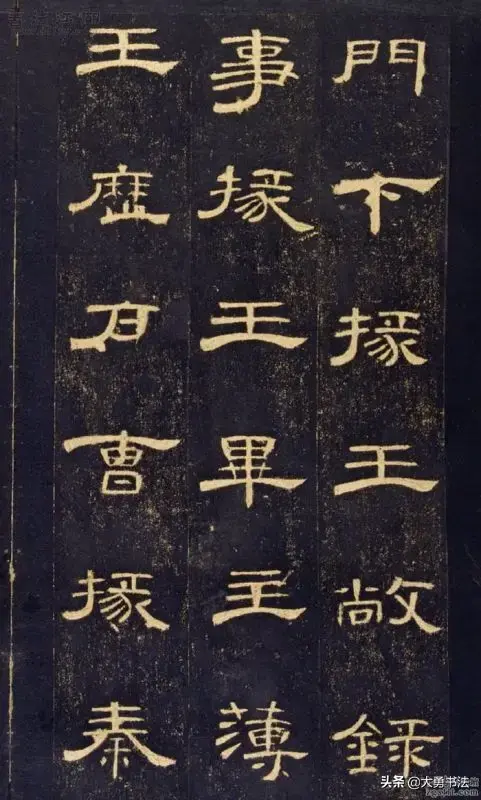 門下掾王敞錄
事掾王畢主薄
王歷戶曹掾秦
头条 @大勇书法